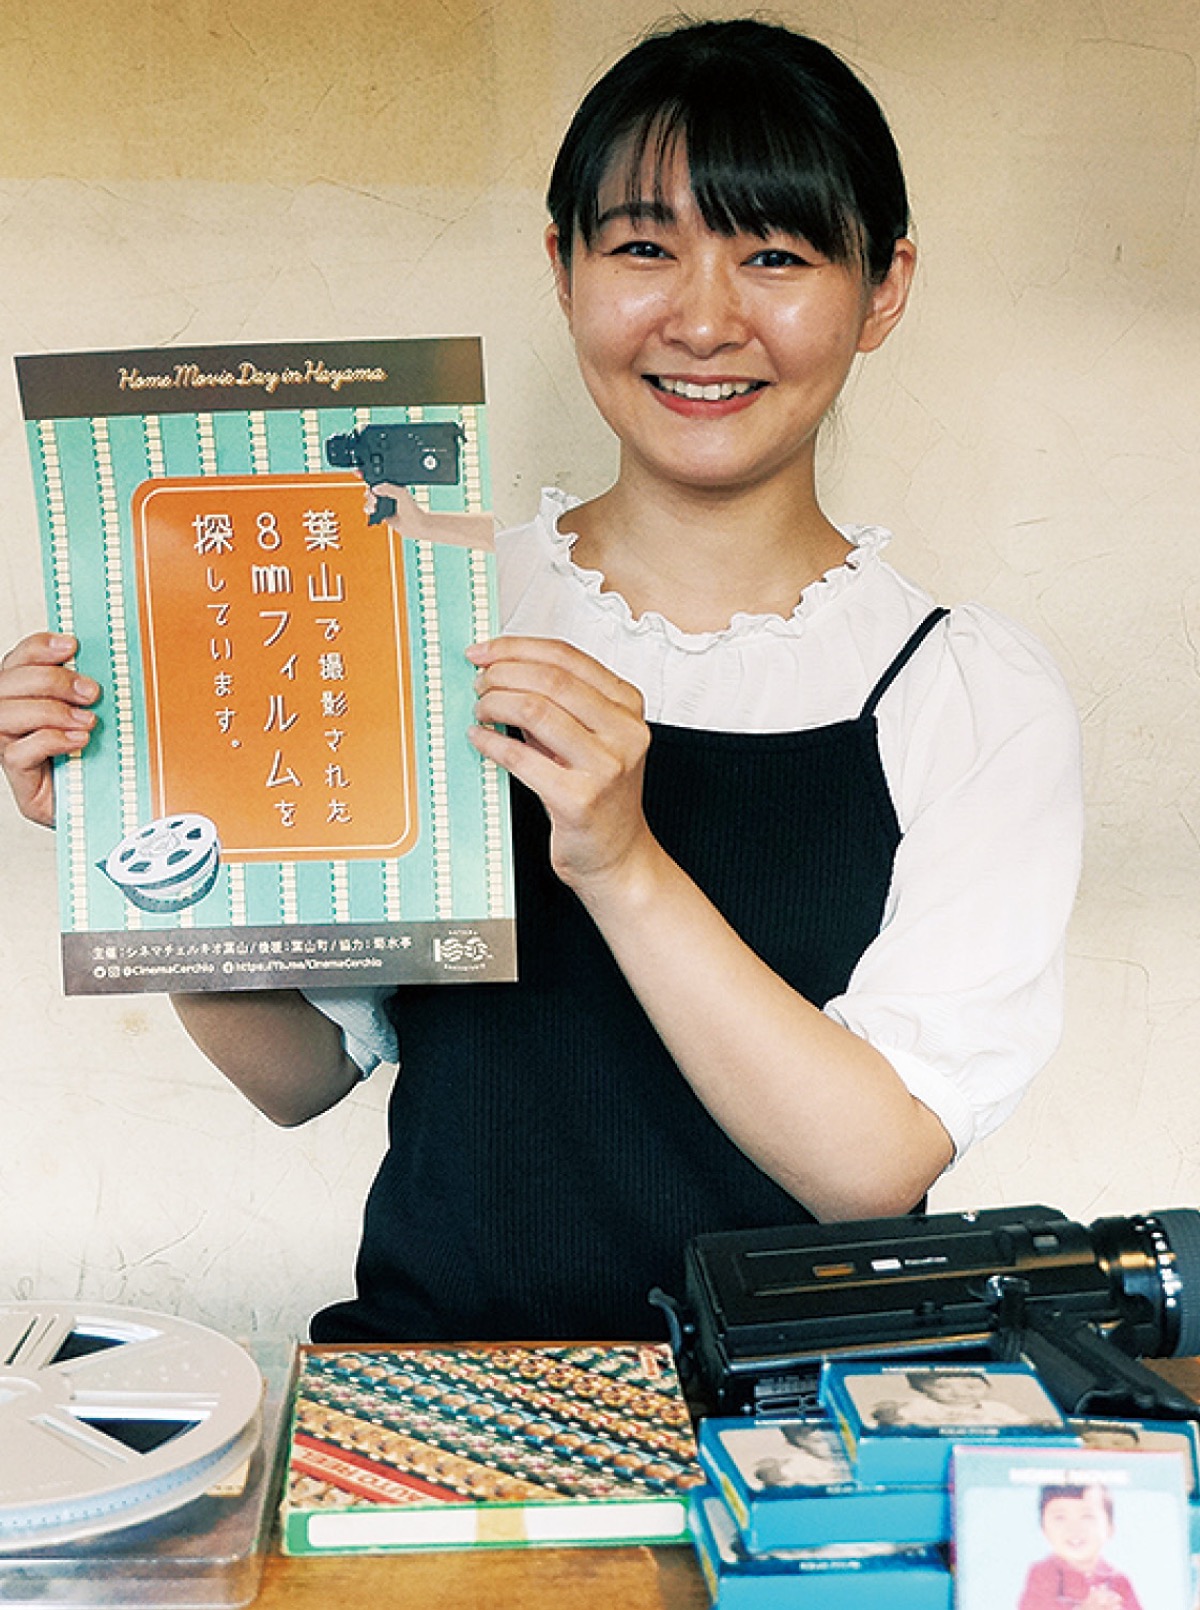 Home Movie Day in Hayama
葉山で撮影された
8mmフィルムを
探しています。
主催：シネマチェルキオ葉山/後援：葉山町/協力：菊水亭
@CinemaCerchio
AUTO REEL